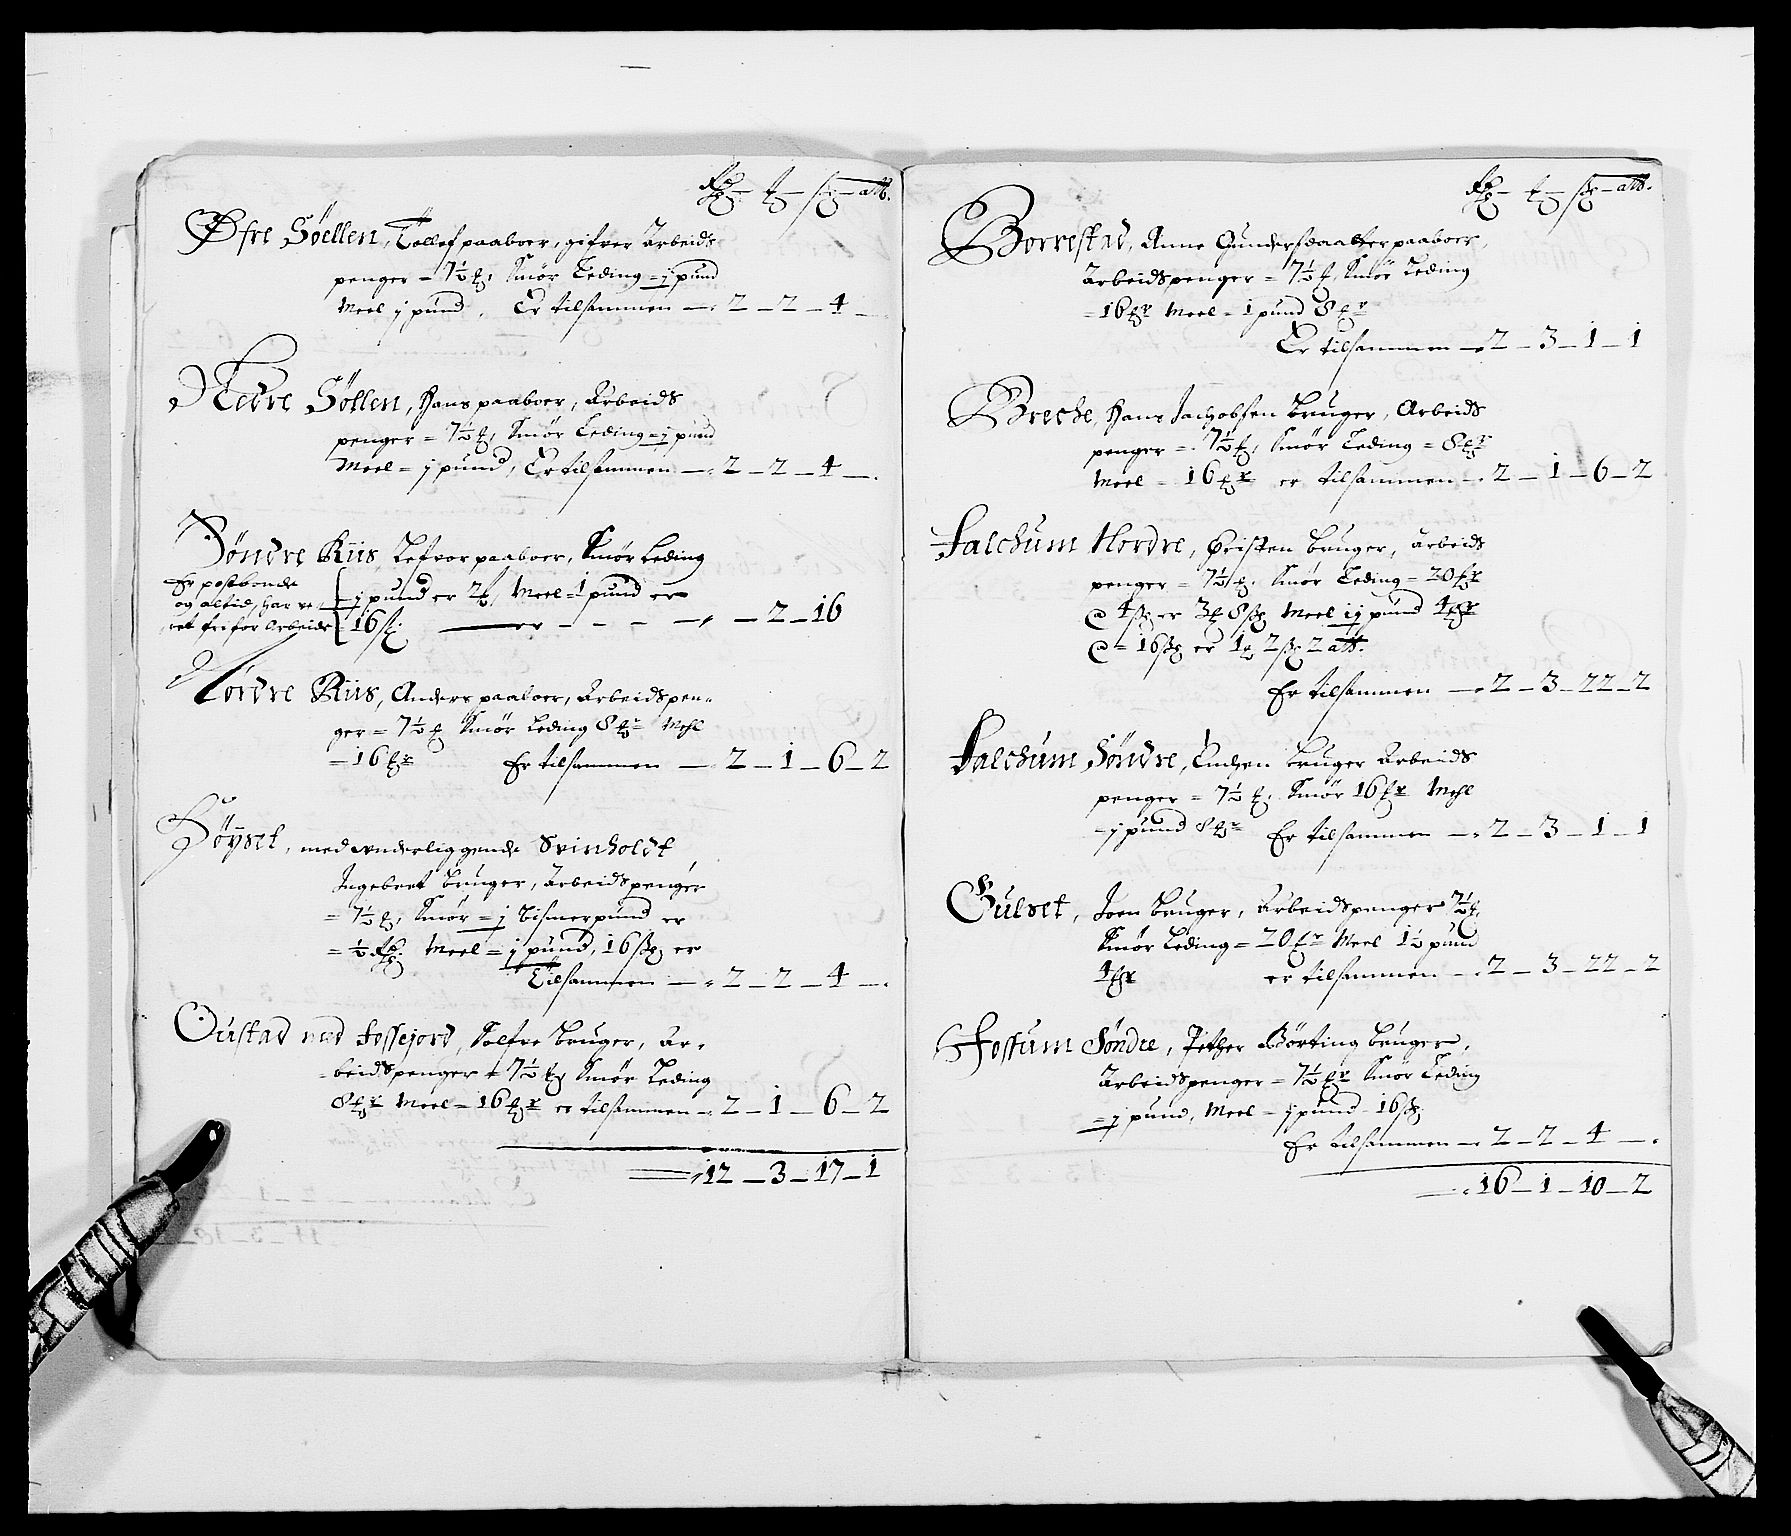 Rdr – ort – sk – alb.
Øfre Söellen, Tollef paaboer, gifver Arbeids
penger = 7½ ort, Smör Leding = j pund
Meel j pund, Er tilsammen — 2 – 2 – 4 –
Nedre Söllen, Hans paaboer, Arbeids
penger = 7½ ort, Smör Leding = j pund
Meel = j pund, Er tilsammen — 2 – 2 – 4 –
Söndre Riis, Lefvor paaboer, Smör Leding
Er postbonde
og altid, har ve
ret fri for Arbeids
j pund er 2 ort, Meel = 1 pund er
16 sk. er – – – – 2 – 16
Nordre Riis, Anders paaboer, Arbeidspen-
ger = 7½ ort Smör Leding 8 mkr Mehl
– 16 mkr Er tilsammen — 2 – 1 – 6 – 2
Höyset, med underliggende Svinholdt
Ingebret bruger, Arbeidspenger
= 7½ ort, Smör = j bismerpund er
= ½ Rdr. Meel = j pund, 16 sk er
Tilsammen — 2 – 2 – 4 –
Oustad med Fossejord, Solfve bruger, Ar-
beidspenger = 7½ ort Smör Leding
8 mkr Meel – 16 mkr er tilsammen – 2 – 1 – 6 – 2
12 – 3 – 17 – 1
Rdr – ort – sk – alb.
Borrestad, Anne Gundersdaatter paaboer,
Arbeidspenger = 7½ ort, Smör Leding
= 16 mkr Meel – 1 pund 8 mkr
Er tilsammen — 2 – 3 – 1 – 1
Breche, Hans Jachobsen bruger, Arbeids
penger = 7½ ort, Smör Leding = 8 mkr
Meel – 16 mkr er tilsammen – 2 – 1 – 6 – 2
Falchum Nordre, Christen bruger, arbeids
penger = 7½ ort. Smör Leding = 20 mkr
@ 4 sk er 3 ort 8 sk Meel ij pund 4 mkr
@ = 16 sk er 1 ort 2 sk 2 alb.
Er tilsammen — 2 – 3 – 22 – 2
Falchum Söndre, bruger Arbeids
penger = 7½ ort. Smör 16 mkr Mehl
– j pund 8 mkr Er tilsammen — 2 – 3 – 1 – 1
Gulset, Joen bruger, Arbeidspenger 7½ ort,
Smör Leding = 20 mkr Meel 1½ pund
4 mkr er tilsammen — 2 – 3 – 22 – 2
Fossum Söndre, Pether Börting bruger,
Arbeidspenger = 7½ ort Smör Leding
= j pund, Meel – j pund – 16 sk
Er tilsammen — 2 – 2 – 4 –
16 – 1 – 10 – 2